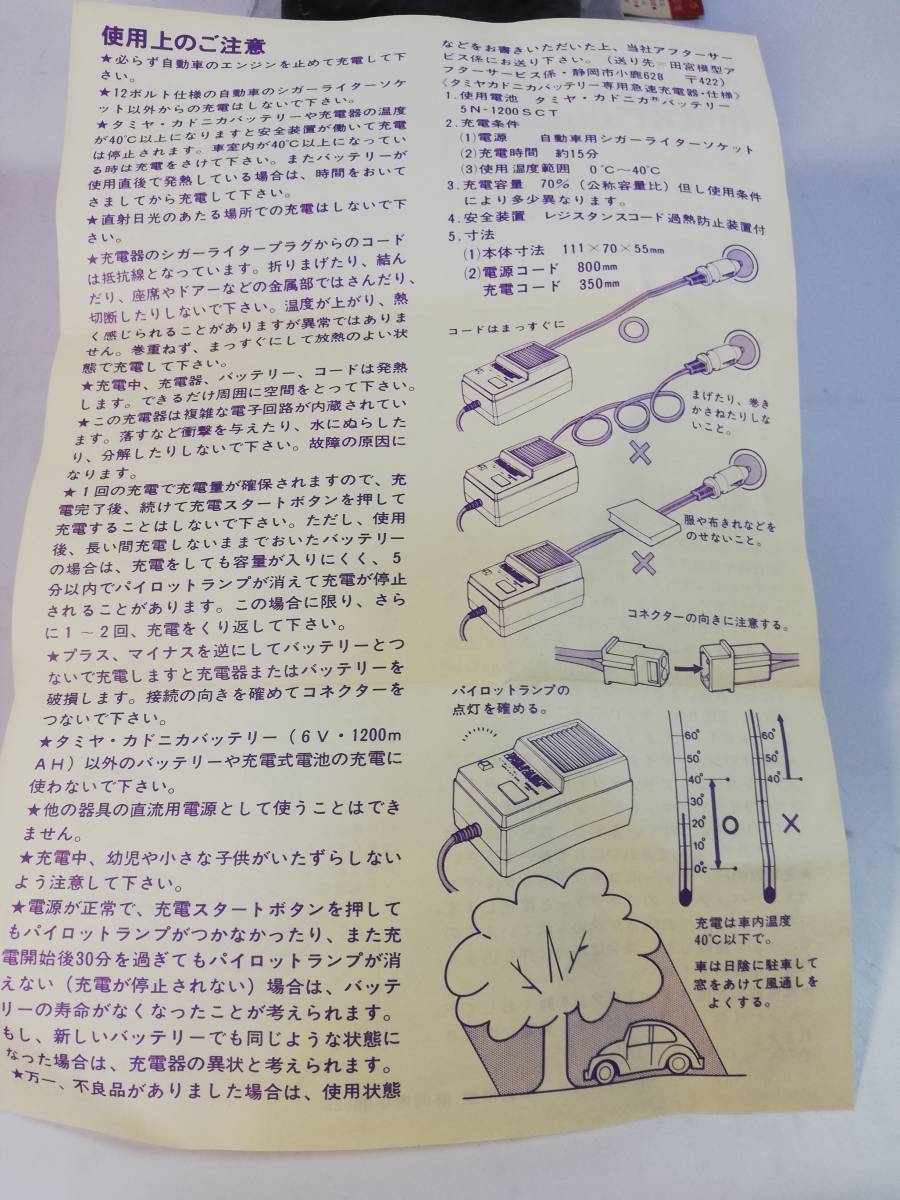 使用上のご注意
★必らず自動車のエンジンを止めて充電して下
さい。
★12ボルト仕様の自動車のシガーライターソケ
ット以外からの充電はしないで下さい。
★タミヤ・カドニカバッテリーや充電器の温度
が40℃以上になりますと安全装置が働いて充電
は停止されます。車室内が40℃以上になってい
る時は充電をさけて下さい。またバッテリーが
使用直後で発熱している場合は、時間をおいて
さましてから充電して下さい。
★直射日光のあたる場所での充電はしないで下
さい。
★充電器のシガーライタープラグからのコード
は抵抗線となっています。折りまげたり、結ん
だり、座席やドアーなどの金属部ではさんだり、
切断したりしないで下さい。温度が上がり、熱
く感じられることがありますが異常ではありま
せん。巻重ねず、まっすぐにして放熱のよい状
態で充電して下さい。
★充電中、充電器、バッテリー、コードは発熱
します。できるだけ周囲に空間をとって下さい。
★この充電器は複雑な電子回路が内蔵されてい
ます。落すなど衝撃を与えたり、水にぬらした
り、分解したりしないで下さい。故障の原因に
なります。
★1回の充電で充電量が確保されますので、充
電完了後、続けて充電スタートボタンを押して
充電することはしないで下さい。ただし、使用
後、長い間充電しないままでおいたバッテリー
の場合は、充電をしても容量が入りにくく、5
分以内でパイロットランプが消えて充電が停止
されることがあります。この場合に限り、さら
に1～2回、充電をくり返して下さい。
★プラス、マイナスを逆にしてバッテリーとつ
ないで充電しますと充電器またはバッテリーを
破損します。接続の向きを確めてコネクターを
つないで下さい。
★タミヤ・カドニカバッテリー（6V・1200m
AH）以外のバッテリーや充電式電池の充電に
使わないで下さい。
★他の器具の直流用電源として使うことはでき
ません。
★充電中、幼児や小さな子供がいたずらしない
よう注意して下さい。
★電源が正常で、充電スタートボタンを押して
もパイロットランプがつかなかったり、また充
電開始後30分を過ぎてもパイロットランプが消
えない（充電が停止されない）場合は、バッテ
リーの寿命がなくなったことが考えられます。
もし、新しいバッテリーでも同じような状態に
なった場合は、充電器の異状と考えられます。
★万一、不良品がありました場合は、使用状態
などをお書きいただいた上、当社アフターサー
ビス係にお送り下さい。（送り先＝田宮模型ア
フターサービス係・静岡市小鹿628 〒422）
《タミヤカドニカバッテリー専用急速充電器・仕様》
1. 使用電池 タミヤ・カドニカ®バッテリー
5N-1200SCT
2. 充電条件
(1)電源 自動車用シガーライターソケット
(2)充電時間 約15分
(3)使用温度範囲 0℃～40℃
3. 充電容量 70％（公称容量比）但し使用条件
により多少異なります。
4. 安全装置 レジスタンスコード過熱防止装置付
5. 寸法
(1)本体寸法 111×70×55mm
(2)電源コード 800mm
充電コード 350mm
コードはまっすぐに
まげたり、巻き
かさねたりしな
いこと。
服や布きれなどを
のせないこと。
コネクターの向きに注意する。
パイロットランプの
点灯を確める。
60°
50°
40°
30°
20°
10°
0℃
60°
50°
40°
充電は車内温度
40℃以下で。
車は日陰に駐車して
窓をあけて風通しを
よくする。